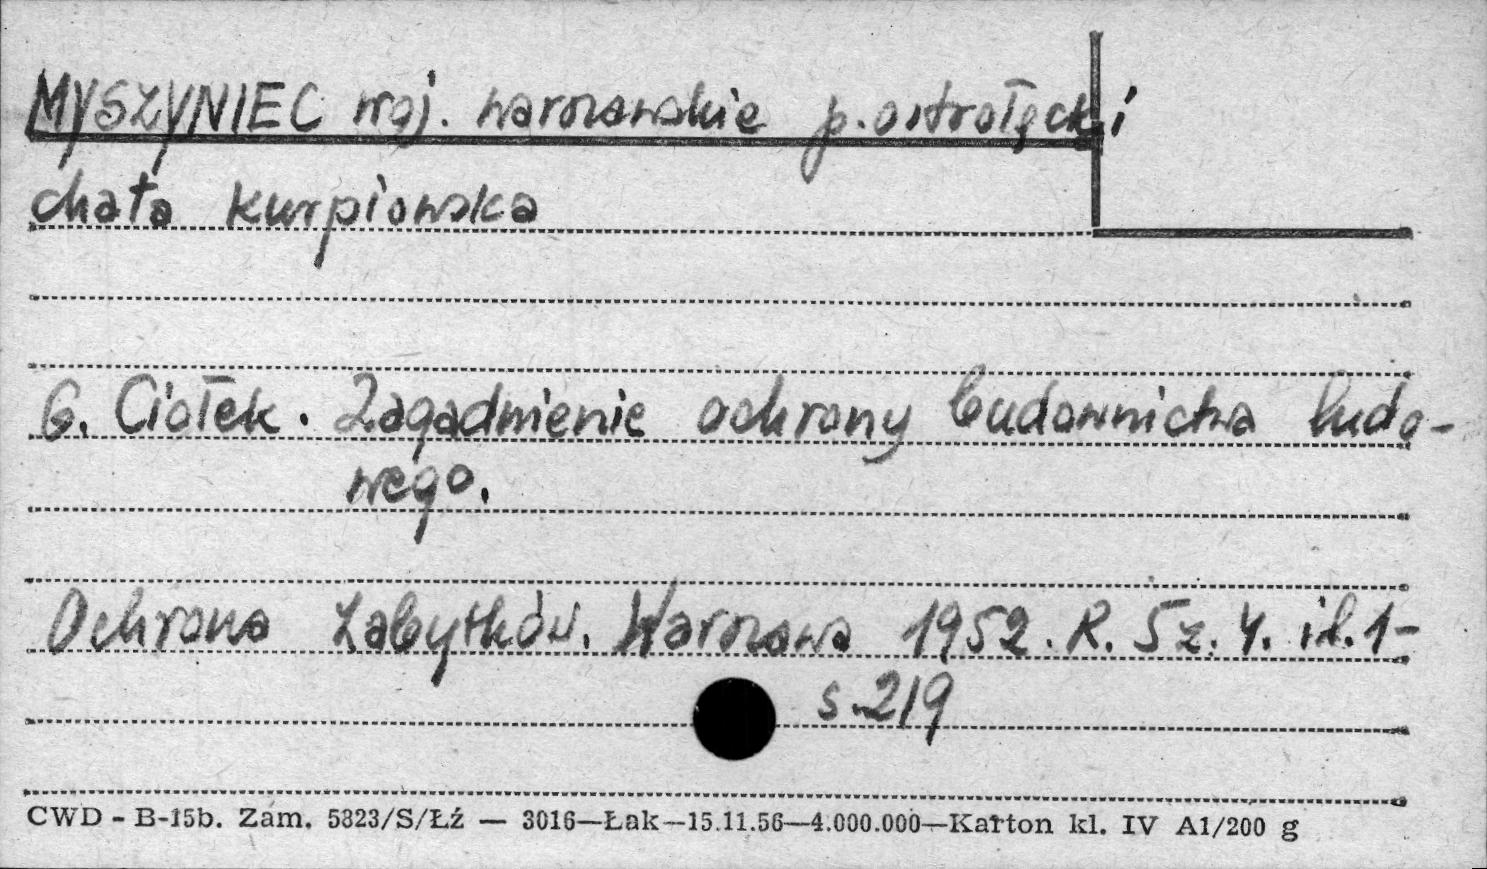 MYSZYNIEC woj. warszawskie p. ostrołęcki
chata kurpiowska
G. Ciołek. Zagadnienie ochrony budownictwa ludo-
wego.
Ochrona Zabytków. Warszawa 1952. R. 5 z. 4. il. 1-
s. 219
CWD - B-15b. Zam. 5823/S/Łź — 3016—Łak—15.11.56—4.000.000—Karton kl. IV A1/200 g